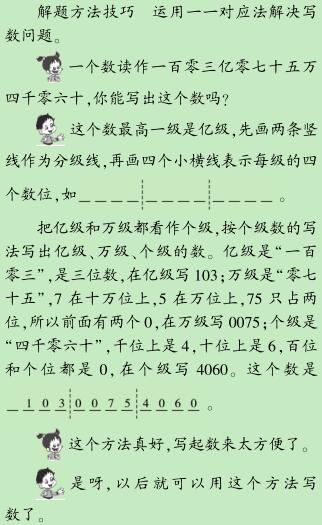 解题方法技巧 运用一一对应法解决写
数问题。
一个数读作一百零三亿零七十五万
四千零六十,你能写出这个数吗?
这个数最高一级是亿级,先画两条竖
线作为分级线,再画四个小横线表示每级的四
个数位,如____¦____¦____。
把亿级和万级都看作个级,按个级数的写
法写出亿级、万级、个级的数。亿级是“一百
零三”,是三位数,在亿级写103;万级是“零七
十五”,7在十万位上,5在万位上,75只占两
位,所以前面有两个0,在万级写0075;个级是
“四千零六十”,千位上是4,十位上是6,百位
和个位都是0,在个级写4060。这个数是
_103¦0075¦4060。
这个方法真好,写起数来太方便了。
是呀,以后就可以用这个方法写
数了。